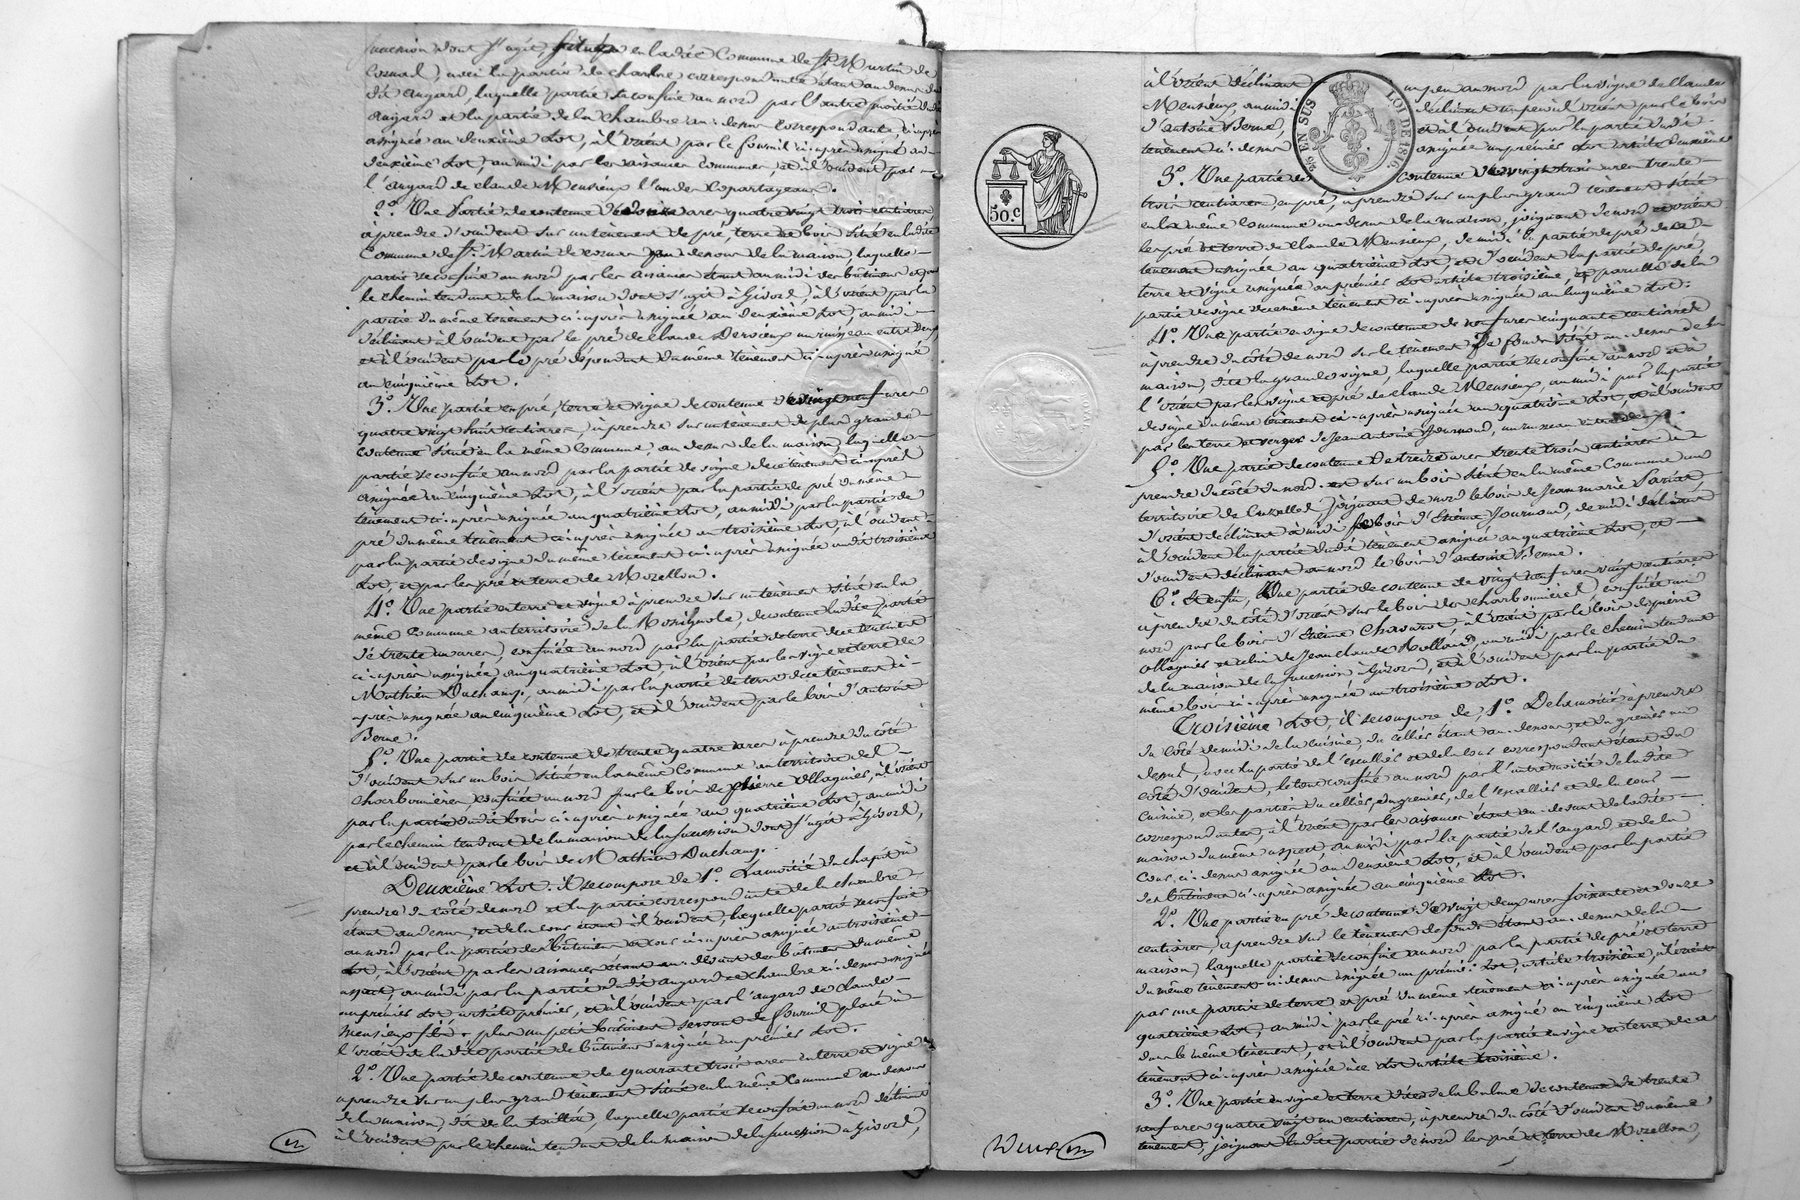 succession dont s'agit, située en la dite Commune de St. Martin de
Cornas, avec la partie de chambre correspondante étant au dessus du
dit angard, laquelle partie se confine au nord par l'autre moitié dudit
angard et la partie de la chambre au dessus correspondante, ci-après
assignée au deuxième Lot, à l'orient par le fournil ci-après assigné au
deuxième Lot, au midi par les aisances communes, et à l'occident par
l'angard de claude Mensieux l'un des copartageans.
2º. Une partie de contenue de ares quatre vingt trois centiares,
à prendre d'occident sur un tènement de pré, terre et bois situé en la dite
Commune de St. Martin de cornas au dessous de la maison, laquelle
partie se confine au nord par les aisances étant au midi des bâtimens et par
le chemin tendant de la maison dont s'agit à Givord, à l'orient par la
partie du même tènement ci-après assignée au deuxième Lot, au midi
déclinant à l'occident par le pré de claude Dervieux un ruisseau entre deux,
et à l'occident par le pré dépendant du même tènement ci-après assigné
au cinquième Lot.
3º. Une partie en pré, terre et vigne de contenue de vingt neuf ares
quatre vingt huit centiares, à prendre sur un tènement de plus grande
contenue situé en la même Commune, au dessus de la maison, laquelle
partie se confine au nord par la partie de vigne de ce tènement ci-après
assignée au cinquième Lot, à l'orient par la partie de pré du même
tènement ci-après assignée au quatrième Lot, au midi par la partie de
pré du même tènement ci-après assignée au troisième Lot, à l'occident
par la partie de vigne du même tènement ci-après assignée au dit troisième
Lot, et par les pré et terre de Mozellon.
4º. Une partie en terre et vigne à prendre sur un tènement situé en la
même Commune au territoire de la Rossignole, de contenue la dite partie
de trente un ares, confinée au nord par la partie de terre de ce tènement
ci-après assignée au quatrième Lot, à l'orient par les vigne et terre de
Mathieu Duchamp, au midi par la partie de terre de ce tènement ci-
après assignée au cinquième Lot, et à l'occident par le bois d'antoine
Berne.
5º. Une partie de contenue de trente quatre ares à prendre du côté
d'occident sur un bois situé en la même Commune au territoire de
charbonnières, confinée au nord par le bois de pierre Ollagnier, à l'orient
par la partie dudit bois ci-après assignée au quatrième Lot, au midi
par le chemin tendant de la maison de la succession dont s'agit à Givord,
et à l'occident par le bois de Mathieu Duchamp.
Deuxième Lot. il se compose de 1º. La moitié du chapit à
prendre du côté de nord et la partie correspondante de la chambre
étant au dessus, et de la cour étant à l'occident, laquelle partie se confine
au nord par la partie des bâtimens et cour ci-après assignée au troisième
Lot, à l'orient par les aisances étant au devant des bâtimens du même
aspect, au midi par la partie dudit angard et chambre ci-dessus assignée
au premier Lot article premier, et à l'occident par l'angard de claude
Mensieux fils. plus un petit bâtiment servant de fournil placé à
l'orient de la dite partie de bâtimens assignée au premier Lot.
2º. Une partie de contenue de quarante trois ares en terre et vigne
à prendre sur un plus grand tènement situé en la même Commune au dessous
de la maison, dit de la taillée, laquelle partie se confine au nord déclinant
à l'occident par le chemin tendant de la maison de la succession à Givord,
50.c
à l'orient déclinant un peu au nord par la vigne de claude
Mensieux, au midi déclinant un peu à l'orient par le bois
d'antoine Berne, et à l'occident par la partie dudit
tènement ci-dessus assignée au premier Lot article deuxième
EN SUS
LOI DE 1816.
3º. Une partie de contenue de vingt trois ares trente
trois centiares, en pré, à prendre sur un plus grand tènement situé
en la même Commune au dessus de la maison, joignant de nord et orient
les pré et terre de claude Mensieux, de midi la partie de pré de ce
tènement assignée au quatrième Lot, et d'occident la partie de pré,
terre et vigne assignée au premier Lot article troisième, et parcelle de la
partie de vigne de ce même tènement ci-après assignée au cinquième Lot.
4º. Une partie en vigne de contenue de neuf ares cinquante centiares
à prendre du côté de nord sur le tènement de fonds situé au dessus de la
maison, dit la grande vigne, laquelle partie se confine au nord et à
l'orient par les vigne et pré de claude Mensieux, au midi par la partie
de vigne du même tènement ci-après assignée au quatrième Lot, et à l'occident
par les terre et verger de Jean Antoine Journoud, un ruisseau entre deux.
5º. Une partie de contenue de treize ares trente trois centiares à
prendre du côté du nord sur un bois situé en la même Commune au
territoire de Cruzelles, joignant de nord le bois de Jean marie
d'orient déclinant à midi le bois d'Etienne Journoud, de midi déclinant
à l'occident la partie dudit tènement assignée au quatrième Lot, et
d'occident déclinant au nord le bois d'antoine Berne.
6º. Et enfin, Une partie de contenue de vingt neuf ares vingt centiares
à prendre du côté d'orient sur le bois des charbonnières, confinée au
nord par le bois d'Etienne Chavanne, à l'orient par le bois de pierre
Ollagnier et celui de Jean claude, au midi par le chemin tendant
de la maison de la succession à Givord, et à l'occident par la partie du
même bois ci-après assignée au troisième Lot.
Troisième Lot, il se compose de, 1º. De la moitié à prendre
du côté de midi de la cuisine, du cellier étant au dessous, et du grenier au
dessus, avec la partie de l'escallier et de la cour correspondant étant du
côté d'occident, le tout confiné au nord par l'autre moitié de la dite
cuisine, et les parties du cellier, du grenier, de l'escallier et de la cour
correspondantes, à l'orient par les aisances étant au devant de la dite
maison du même aspect, au midi par la partie de l'angard et de la
Cour, ci-dessus assignée au deuxième Lot, et à l'occident par la partie
des bâtimens ci-après assignée au cinquième Lot.
2º. Une partie en pré de contenue de vingt deux ares soixante et douze
centiares, à prendre sur le tènement de fonds étant au dessus de la
maison, laquelle partie se confine au nord par la partie de pré et terre
du même tènement ci-dessus assignée au premier Lot, article troisième, à l'orient
par une partie de terre et pré du même tènement ci-après assignée au
quatrième Lot, au midi par le pré ci-après assigné au cinquième Lot
dans le même tènement, et à l'occident par la partie en vigne et terre de ce
tènement ci-après assignée à ce Lot article troisième.
3º. Une partie en vigne et terre dites de la balme de contenue de trente
neuf ares quatre vingt un centiares, à prendre du côté d'occident du même
tènement, joignant la dite partie de nord les pré et terre de Mozellon,